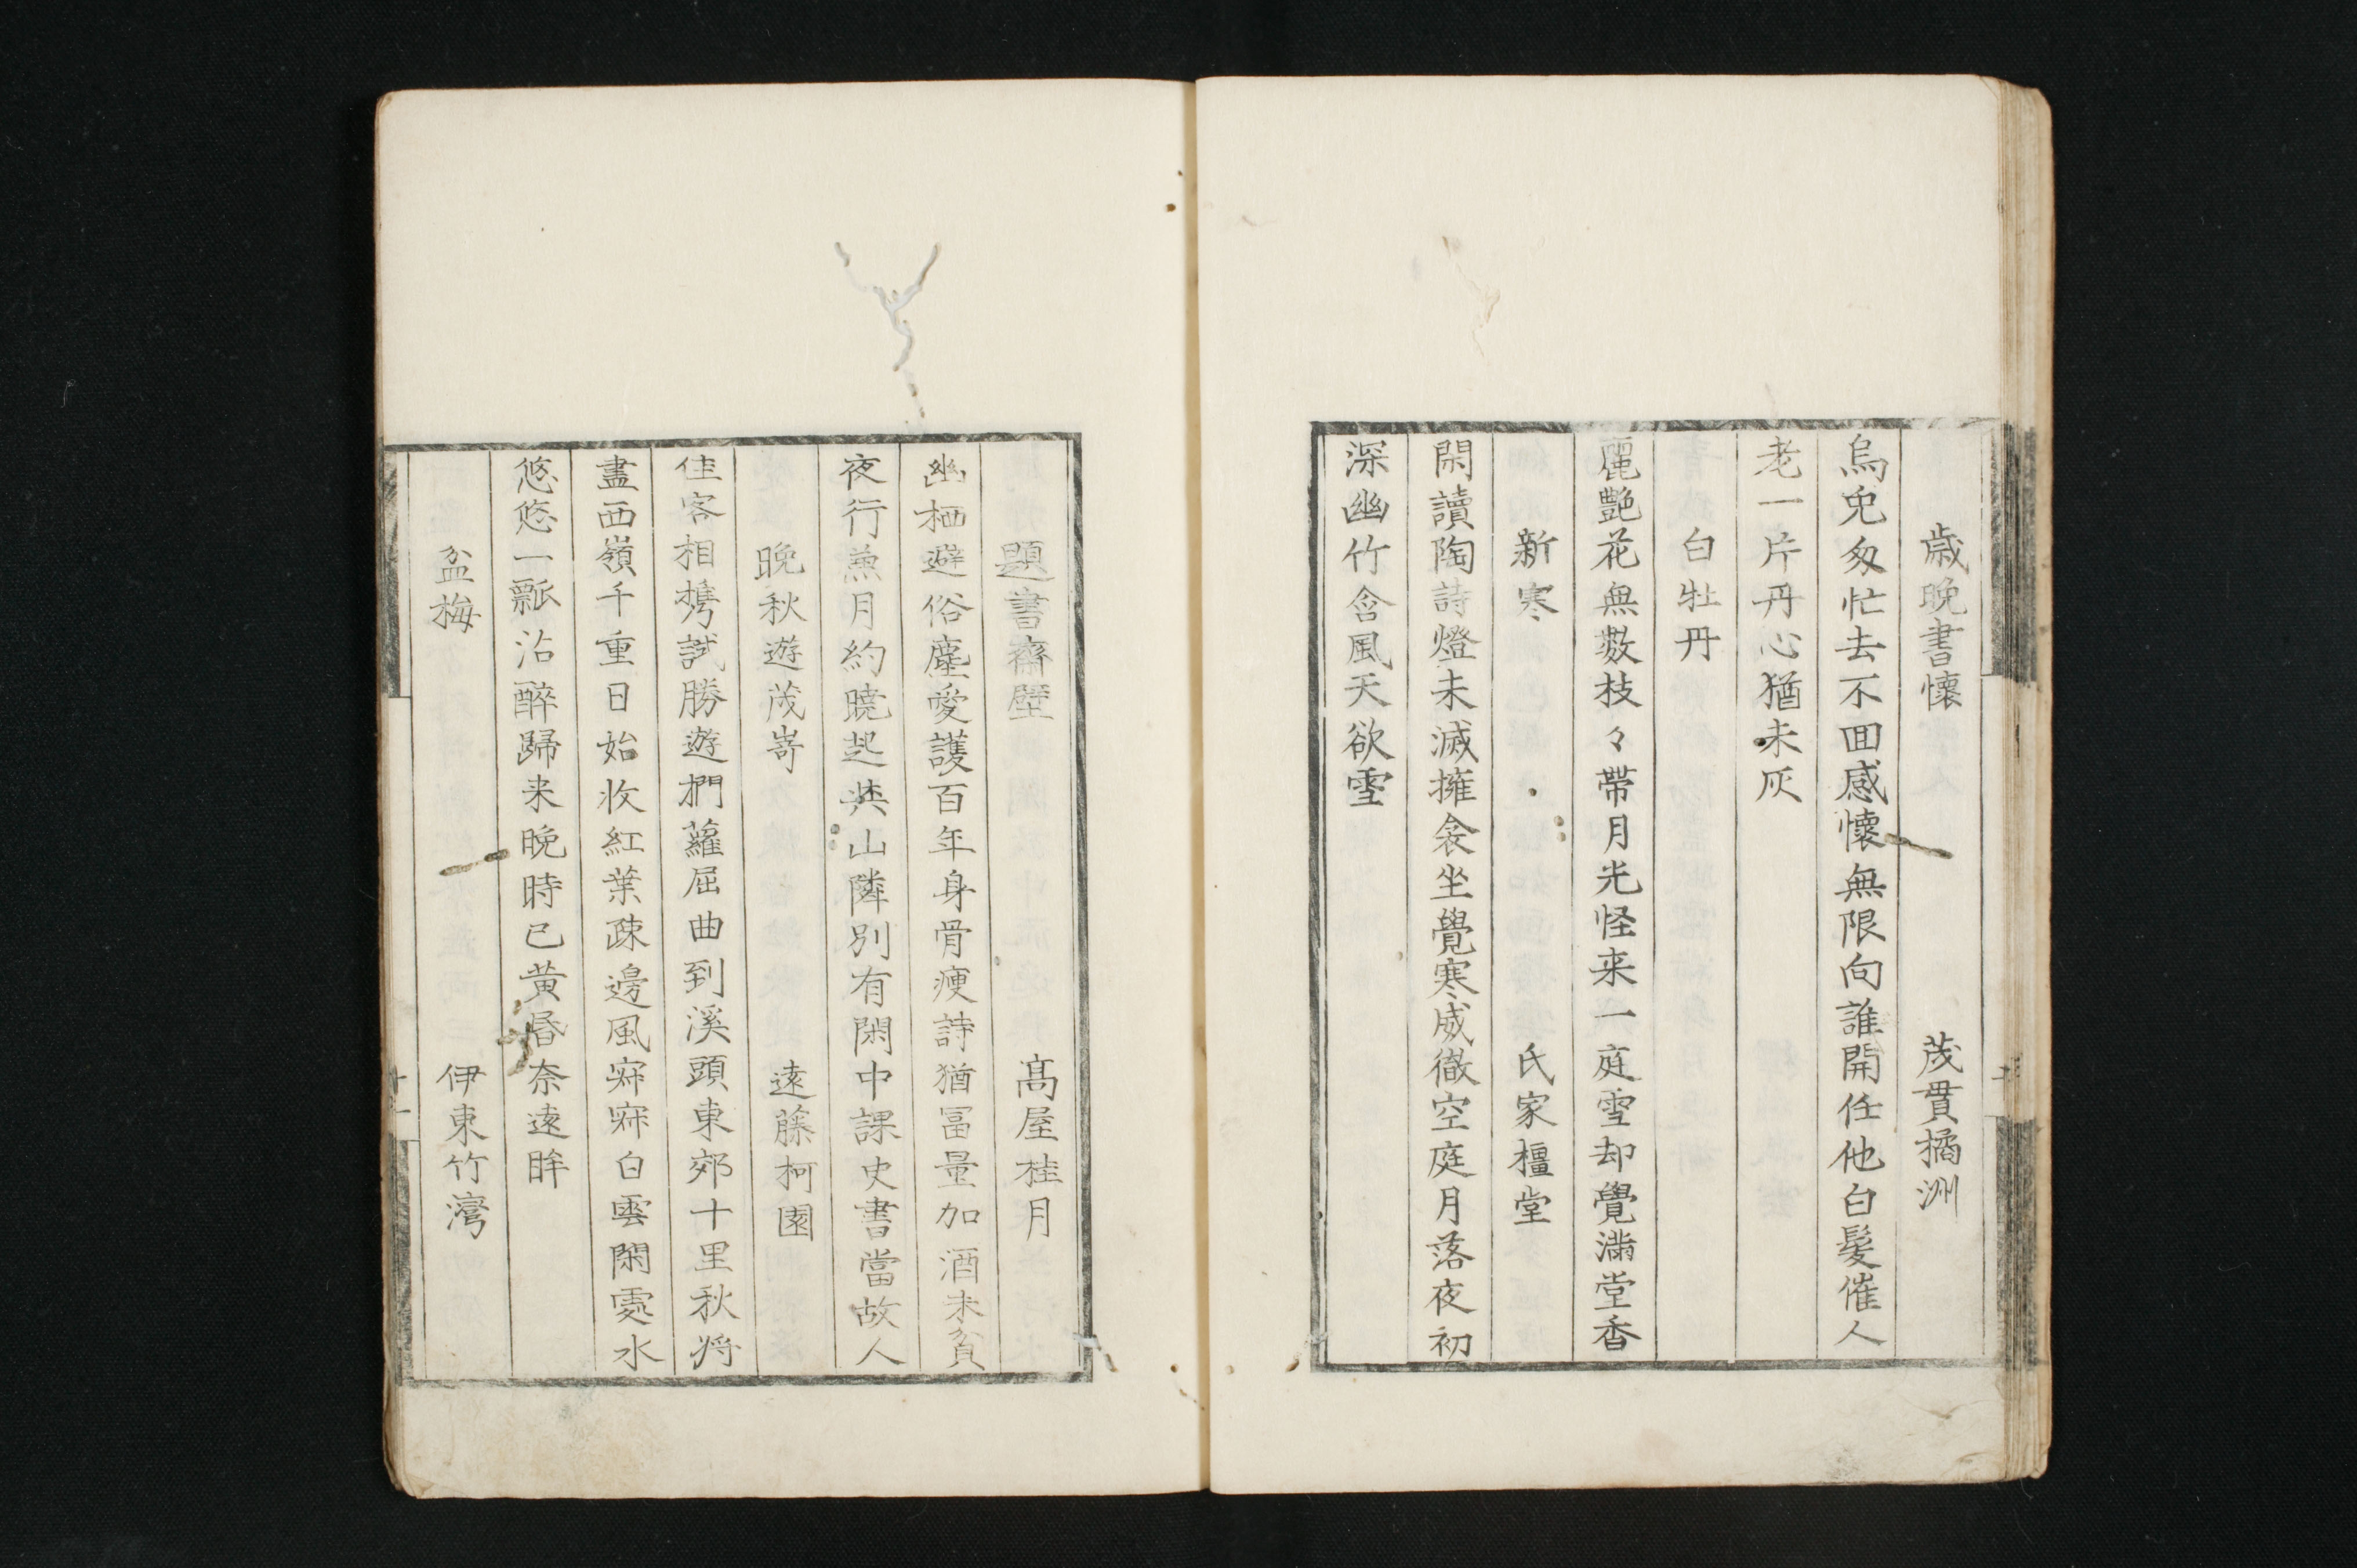 歳晩書懷 茂貫橘洲
烏兎匆忙去不囬感懷無限向誰開任他白髮催人
老一片丹心猶未灰
白牡丹
麗艶花無數枝々帶月光怪来一庭雪却覺滿堂香
新寒 氏家橿堂
閑讀陶詩燈未滅擁衾坐覺寒威徹空庭月落夜初
深幽竹含風天欲雪
題書齋壁 髙屋桂月
幽栖避俗塵愛護百年身骨瘦詩猶冨量加酒未貧
夜行兼月約曉起共山隣別有閑中課史書當故人
晩秋遊茂嵜 遠藤柯園
佳客相携試勝遊捫蘿屈曲到溪頭東郊十里秋将
盡西嶺千重日始收紅葉疎邊風寂寂白雲閑處水
悠悠一瓢沾醉歸来晩時已黄昏奈遠眸
盆梅 伊東竹灣